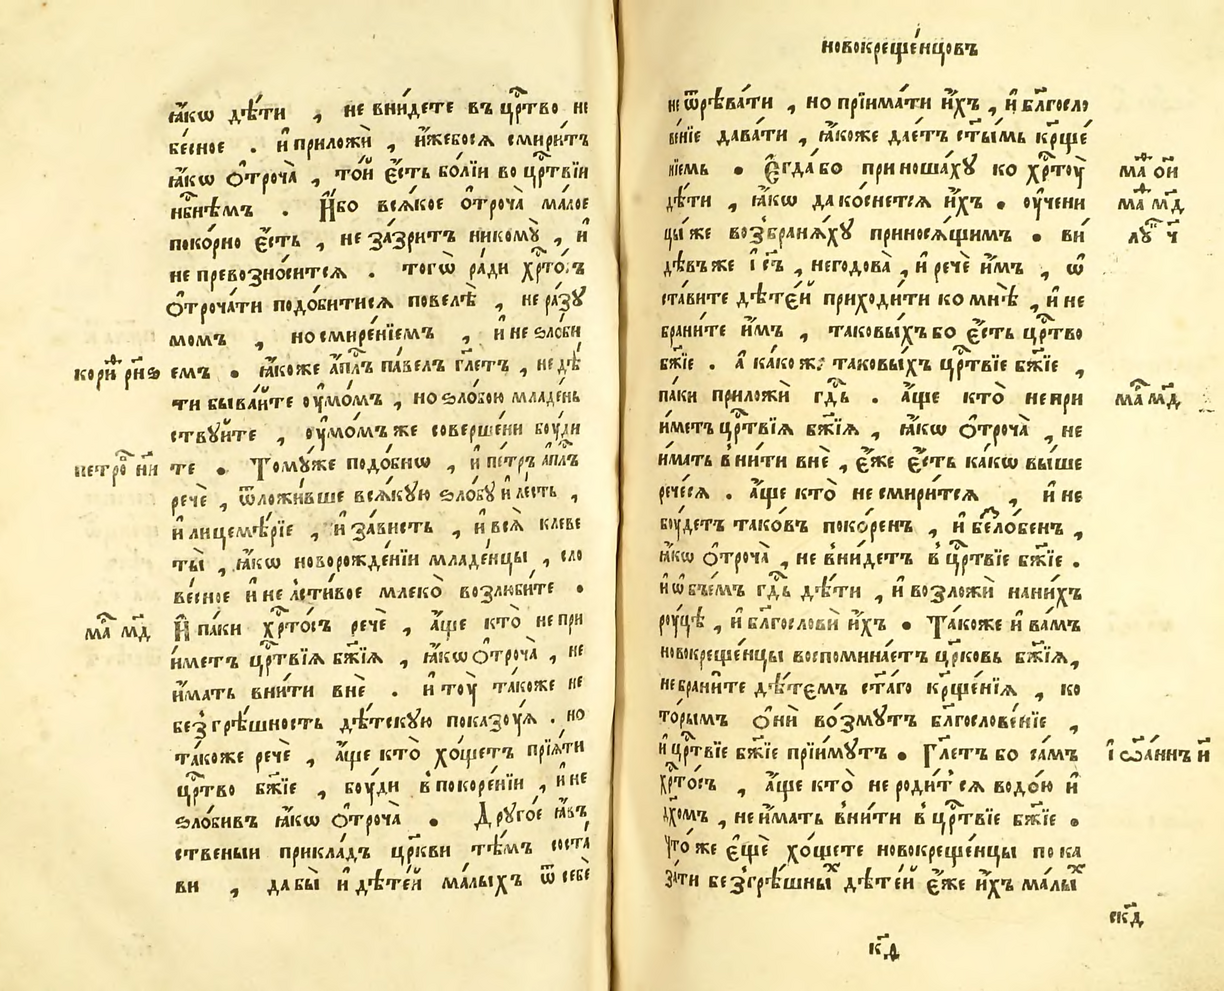 ꙗ҆́кѡ дѣ́ти , не вни́дете въ цр҃тво не
бе́сное . и҆ приложѝ , и҆́жебосѧ смири́тъ
ꙗ҆́кѡ ѻ҆троча̀ , то́й є҆́сть бо́лїи во цр҃твїи
нб҃нѣмъ . И҆́бо всѧ́кое ѻ҆троча̀ ма́лое
поко́рно є҆́сть , не за́зритъ никомꙋ̀ , и҆
не превозно́ситсѧ . тогѡ̀ ра́ди хрⷭ҇то́съ
ѻ҆троча́ти подо́битисѧ повелѣ̀ , не ра́зꙋ
момъ , но смире́нїемъ , и҆ не ѕло́би
кори́н рн҃ѕ
емъ . ꙗ҆́коже а҆пⷭ҇лъ па́велъ гл҃етъ , не дѣ́
ти быва́йте оу҆мо́мъ , но ѕло́бою младе́нь
ствꙋ́йте , оу҆мо́мъ же соверше́ни бꙋ́ди
петро̀ н҃и
те . Томꙋ́же подо́бнѡ , и҆ пе́тръ а҆пⷭ҇лъ
речѐ , ѿложи́вше всѧ́кꙋю ѕло́бꙋ и҆ ле́сть ,
и҆ лицемѣ́рїе , и҆ за́висть , и҆ всѧ̀ клеве
ты̀ , ꙗ҆́кѡ новорожде́нїи младе́нцы , сло
ве́сное и҆ не ле́стивое млеко̀ возлюби́те .
ма́т м҃д
И҆ па́ки хрⷭ҇то́съ речѐ , а҆́ще кто̀ не при
и҆́метъ црⷭ҇твїѧ бж҃їѧ , ꙗ҆́кѡ ѻ҆троча̀ , не
и҆́мать вни́ти внѐ . и҆ тоу̀ та́коже не
без̾грѣ́шность дѣ́тскꙋю показꙋ́ѧ . но
та́коже речѐ , а҆́ще кто̀ хо́щетъ прїѧ́ти
црⷭ҇тво бж҃їе , бꙋ́ди в̾покоре́нїи , и҆ не
ѕло́бивъ ꙗ҆́кѡ ѻ҆троча̀ . Дрꙋго́е ꙗ҆́въ
ственыи прикла́дъ цр҃кви тѣ́мъ соста́
ви , да бы̀ и҆ дѣ́тей ма́лыхъ ѿ себѐ
новокреще́нцовъ
не ѿрѣва́ти , но прїима́ти и҆́хъ , и҆ блг҃осло
ве́нїе дава́ти , ꙗ҆́коже дае́тъ ст҃ы́мь кр҃ще́
нїемь . Є҆гда́ бо приноша́хꙋ ко хрⷭ҇тоу̀
ма́т о҃и
дѣ́ти , ꙗ҆́кѡ да ко́снетсѧ и҆́хъ . оу҆чени
ма́р м҃д
цы́ же воз̾бранѧ́хꙋ приносѧ́щимъ . ви́
лꙋ҃к ч҃
дѣвъ же і҆с҃ъ , негодова̀ , и҆ речѐ и҆̀мъ , ѡ҆
ста́вите дѣте́й приходи́ти ко мнѣ̀ , и҆ не
брани́те и҆̀мъ , таковы́хъ бо є҆́сть црⷭ҇тво
бж҃їе . А҆ ка́ко ж: таковы́хъ црⷭ҇твїе бж҃їе ,
па́ки приложѝ гдⷭ҇ь . а҆́ще кто̀ не при
ма́т м҃д
и҆́метъ црⷭ҇твїѧ бж҃їѧ , ꙗ҆́кѡ ѻ҆троча̀ , не
и҆́мать в̾ни́ти внѐ , є҆́же є҆́сть ка́кѡ вы́ше
рече́сѧ . а҆́ще кто̀ не смири́тсѧ , и҆ не
бꙋ́детъ тако́въ поко́ренъ , и҆ беѕло́бенъ ,
ꙗ҆́кѡ ѻ҆троча̀ , не в̾ни́детъ в̾ црⷭ҇твїе бж҃їе .
и҆ ѡ҆б̾е́мъ гдⷭ҇ь дѣ́ти , и҆ возложѝ на ни́хъ
роуцѣ̀ , и҆ блг҃ословѝ и҆́хъ . Та́коже и҆ ва́мъ
новокреще́нцы воспомина́етъ цр҃ковь бж҃їѧ,
не брани́те дѣ́темъ ст҃а́го кр҃ще́нїѧ , ко
то́рымъ ѻ҆нѝ во́змꙋтъ блг҃ослове́нїе ,
и҆ црⷭ҇твїе бж҃їе прїи́мꙋтъ . Гл҃етъ бо са́мъ
і҆ѡа́ннъ и҃
хрⷭ҇то́съ , а҆́ще кто̀ не роди́т̾сѧ водо́ю и҆
дх҃омъ , не и҆́мать в̾ни́ти в̾ црⷭ҇твїе бж҃їе .
что́ же є҆щѐ хо́щете новокреще́нцы пока
за́ти без̾грѣ́шныⷯ дѣте́й є҆́же и҆́хъ ма́лыⷯ
ск҃д
к҃д